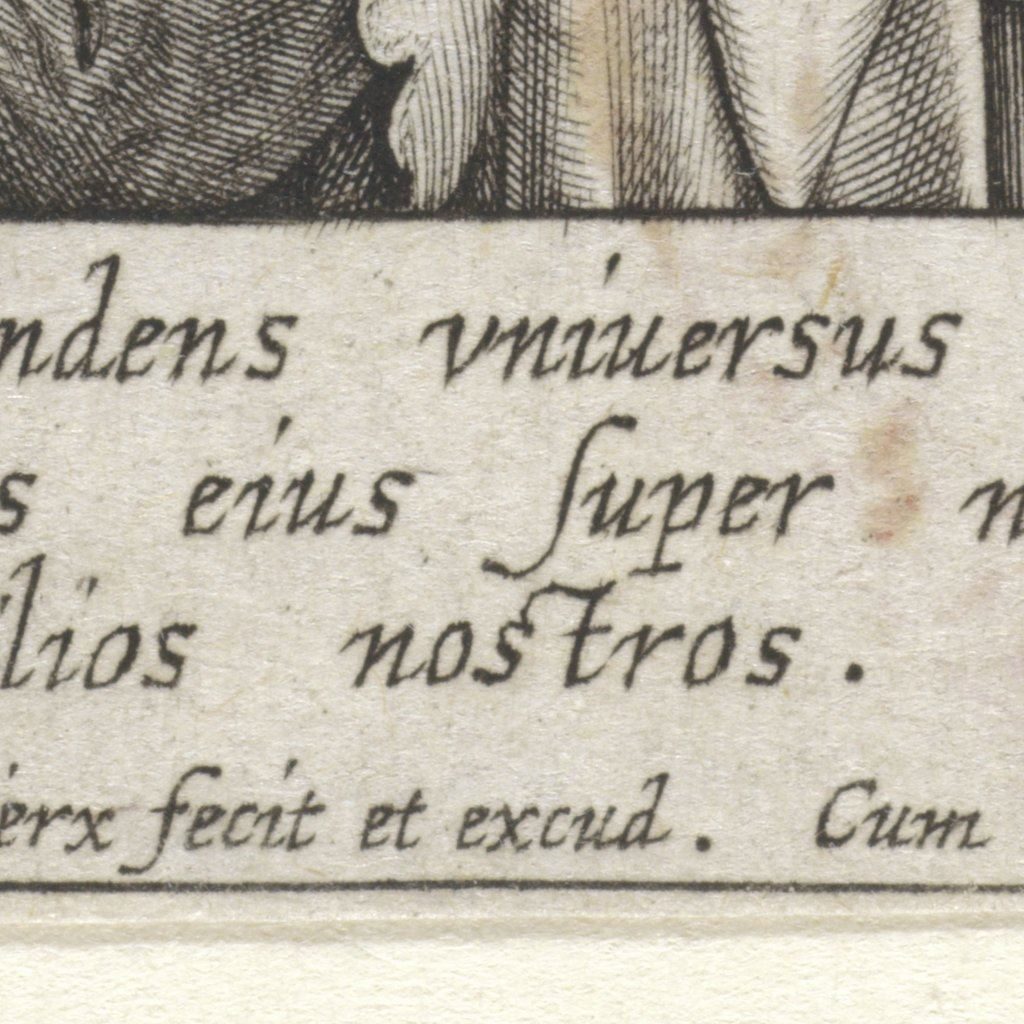 ndens vniuersus
s eius ſuper n
lios nostros.
ierx fecit et excud. Cum